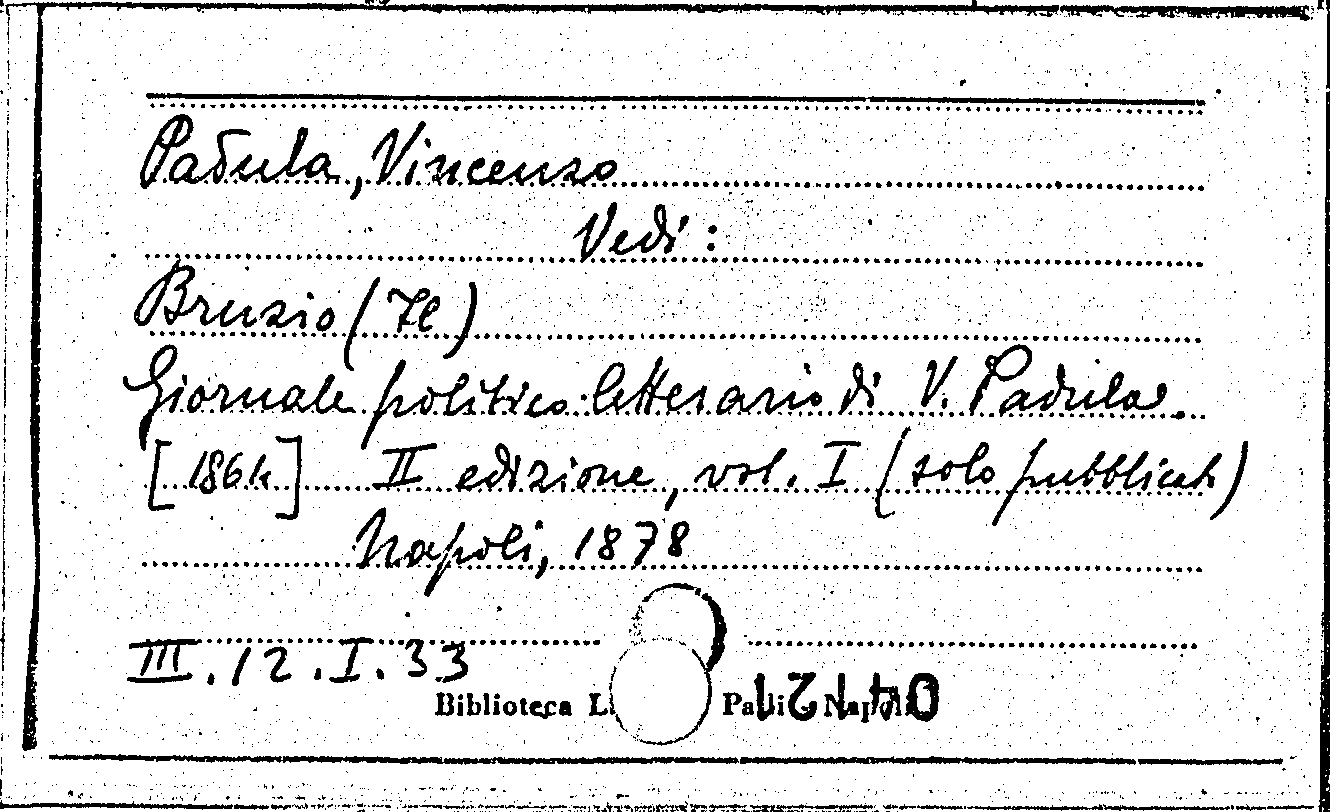 Padula, Vincenzo
Vedi:
Bruzio (Il)
Giornale politico-letterario di V. Padula.
[1864] II edizione, vol. I (solo pubblicato)
Napoli, 1878
III.12.I.33
Biblioteca